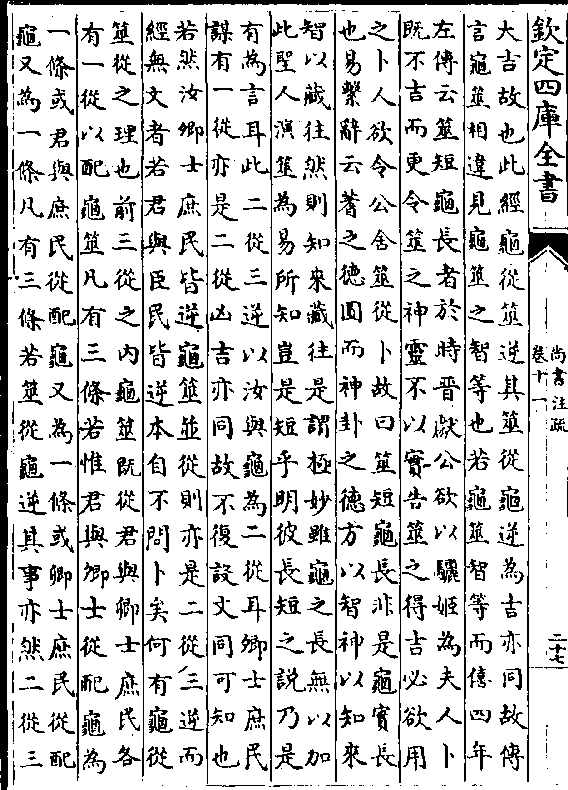 欽定四庫全書
尚書注疏
卷十一
二十七
大吉故也此經龜從筮逆其筮從龜逆為吉亦同故傳
言龜筮相違見龜筮之智等也若龜筮智等而僖四年
左傳云筮短龜長者於時晉獻公欲以驪姬為夫人卜
既不吉而更令筮之神靈不以實告筮之得吉必欲用
之卜人欲令公舍筮從卜故曰筮短龜長非是龜實長
也易繫辭云蓍之德圓而神卦之德方以智神以知來
智以藏往然則知來藏往是謂極妙雖龜之長無以加
此聖人演筮為易所知豈是短乎明彼長短之說乃是
有為言耳此二從三逆以汝與龜為二從耳卿士庶民
謀有一從亦是二從凶吉亦同故不復設文同可知也
若然汝卿士庶民皆逆龜筮並從則亦是二從三逆而
經無文者若君與臣民皆逆本自不問卜矣何有龜從
筮從之理也前三從之內龜筮既從君與卿士庶民各
有一從以配龜筮凡有三條若惟君與卿士從配龜為
一條或君與庶民從配龜又為一條或卿士庶民從配
龜又為一條凡有三條若筮從龜逆其事亦然二從三